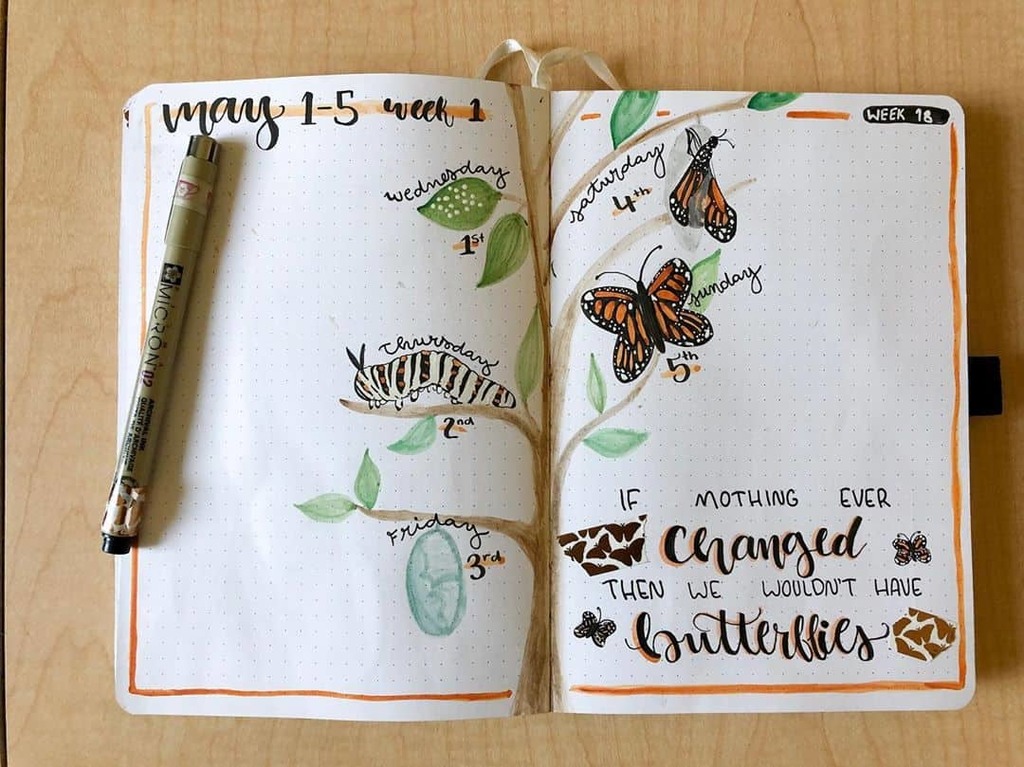 may 1-5 week 1
wednesday
1st
Thursday
2nd
Friday
3rd
WEEK 18
saturday
4th
sunday
5th
IF MOTHING EVER
changed
THEN WE WOULDN'T HAVE
butterflies
MICRON 02
ARCHIVAL INK